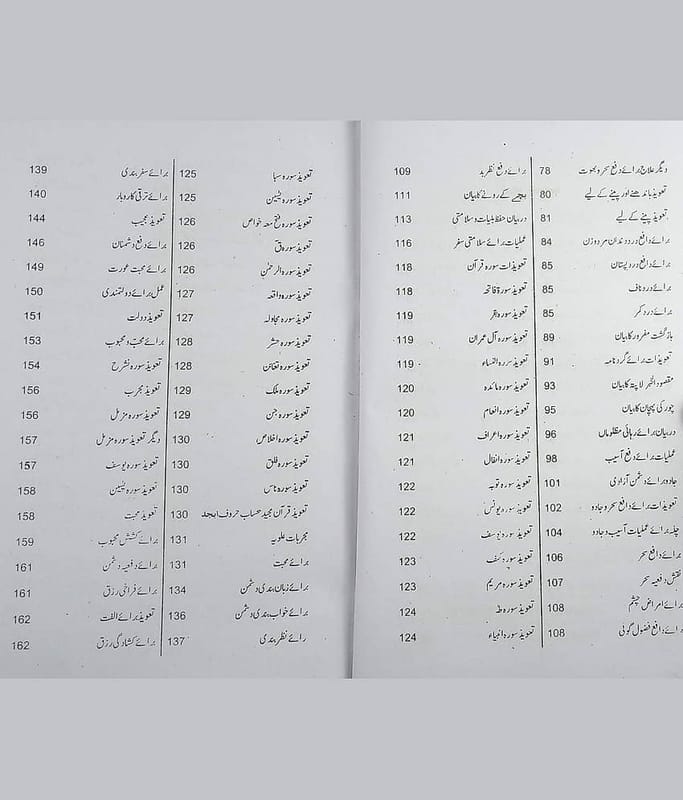 دیگر علاج برائے دفع سحر و بھوت 78
تعویذ باندھنے اور پینے کے لیے 80
تعویذ پینے کے لیے 81
برائے دافع درد دندان مرد و زن 84
برائے دافع درد پستان 85
برائے درد ناف 85
برائے درد کمر 85
بازگشت مفرور کا بیان 89
تعویذات برائے گردنامہ 91
مقصود الخبر لاپتہ کا بیان 93
چور کی پہچان کا بیان 95
در بیان برائے رہائی مظلوماں 96
عملیات برائے دفع آسیب 98
جادو برائے دشمن آزادی 101
تعویذات برائے دافع سحر و جادو 102
چلہ برائے عملیات آسیب و جادو 104
برائے دافع سحر 106
نقش دفعیہ سحر 107
برائے امراض چشم 108
برائے دافع فضول گوئی 108
برائے دفع نظر بد 109
بچے کے رونے کا بیان 111
در بیان حفظ بلیات و سلامتی 113
عملیات برائے سلامتی سفر 116
تعویذات سورہ قرآن 118
تعویذ سورہ فاتحہ 118
تعویذ سورہ بقر 119
تعویذ سورہ آل عمران 119
تعویذ سورہ النساء 119
تعویذ سورہ مائدہ 120
تعویذ سورہ انعام 120
تعویذ سورہ اعراف 121
تعویذ سورہ انفال 121
تعویذ سورہ توبہ 122
تعویذ سورہ یونس 122
تعویذ سورہ یوسف 122
تعویذ سورہ کہف 123
تعویذ سورہ مریم 123
تعویذ سورہ طہ 124
تعویذ سورہ انبیاء 124
تعویذ سورہ سبا 125
تعویذ سورہ یٰسین 125
تعویذ سورہ فتح معہ خواص 126
تعویذ سورہ ق 126
تعویذ سورہ الرحمٰن 126
تعویذ سورہ واقعہ 127
تعویذ سورہ مجادلہ 127
تعویذ سورہ حشر 128
تعویذ سورہ تغابن 128
تعویذ سورہ ملک 129
تعویذ سورہ جن 129
تعویذ سورہ اخلاص 130
تعویذ سورہ فلق 130
تعویذ سورہ ناس 130
تعویذ قرآن مجید حساب حروف ابجد 130
مجربات علویہ 131
برائے محبت 131
برائے زبان بندی دشمن 134
برائے خواب بندی دشمن 136
رائے نظر بندی 137
برائے سفر بندی 139
برائے ترقی کاروبار 140
تعویذ عجیب 144
برائے دفع دشمنان 146
برائے محبت عورت 149
عمل برائے دولتمندی 150
تعویذ دولت 151
برائے محب و محبوب 153
تعویذ سورہ نشرح 154
تعویذ مجرب 156
تعویذ سورہ مزمل 156
دیگر تعویذ سورہ مزمل 157
تعویذ سورہ یوسف 157
تعویذ سورہ یٰسین 158
تعویذ محبت 158
برائے کشش محبوب 159
برائے دفعیہ دشمن 161
برائے فراخی رزق 161
تعویذ برائے الفت 162
برائے کشادگی رزق 162